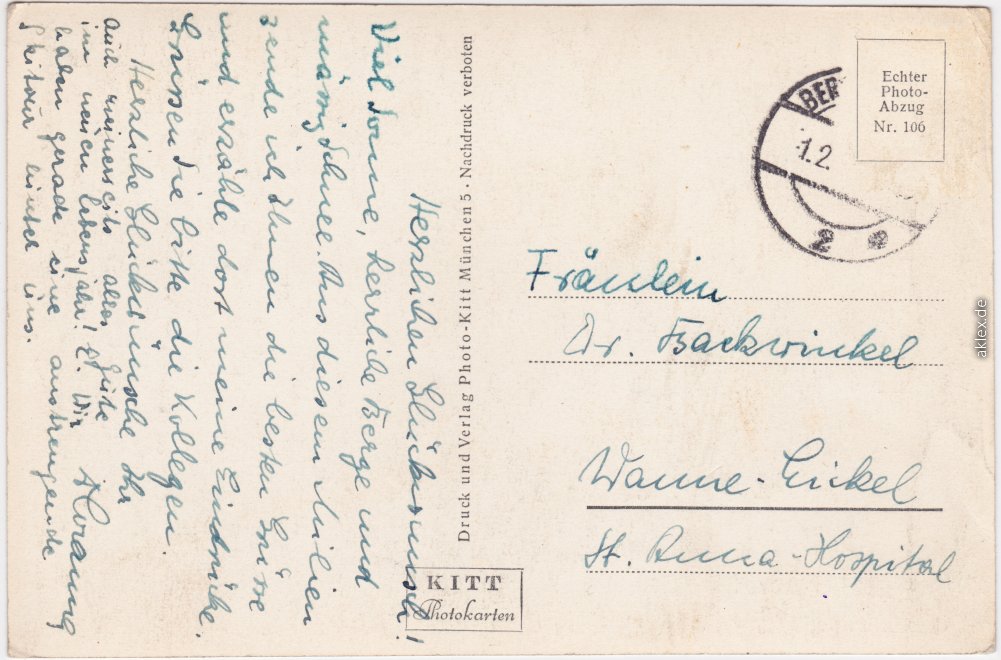 Herzlichen Glückwunsch!
Viel Sonne, herrliche Berge und
mässig Schnee. Aus diesem Milieu
sende ich Ihnen die besten Grüsse
und erzähle dort meine Eindrücke.
Grüssen Sie bitte die Kollegen.
Herzliche Glückwünsche Ihr
Hornung
auch meinerseits alles Gute
im neuen Lebensjahr! Wir
haben gerade eine anstrengende
Skitour hinter uns.
Druck und Verlag Photo-Kitt München 5 · Nachdruck verboten
KITT
Photokarten
Echter
Photo-
Abzug
Nr. 106
BER
1.2
2
Fräulein
Dr. Backwinkel
Wanne-Eickel
St. Anna-Hospital
aklex.de